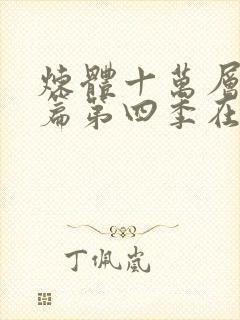 煉體十萬層
篇第四季在
丁佩嵐